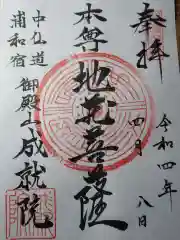 奉拝
令和四年
四月
八日
本尊
地蔵菩薩
中仙道
浦和宿
御殿山
成就院